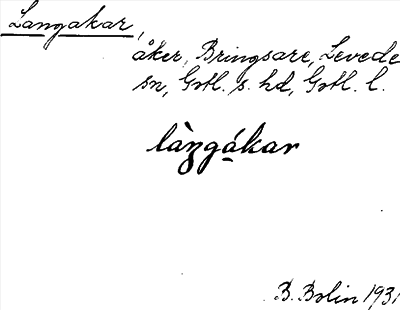 Langakar,
åker, Bringsare, Levede
sn, Gotl. s. hd, Gotl. l.
làŋgákar
B. Bolin 1931